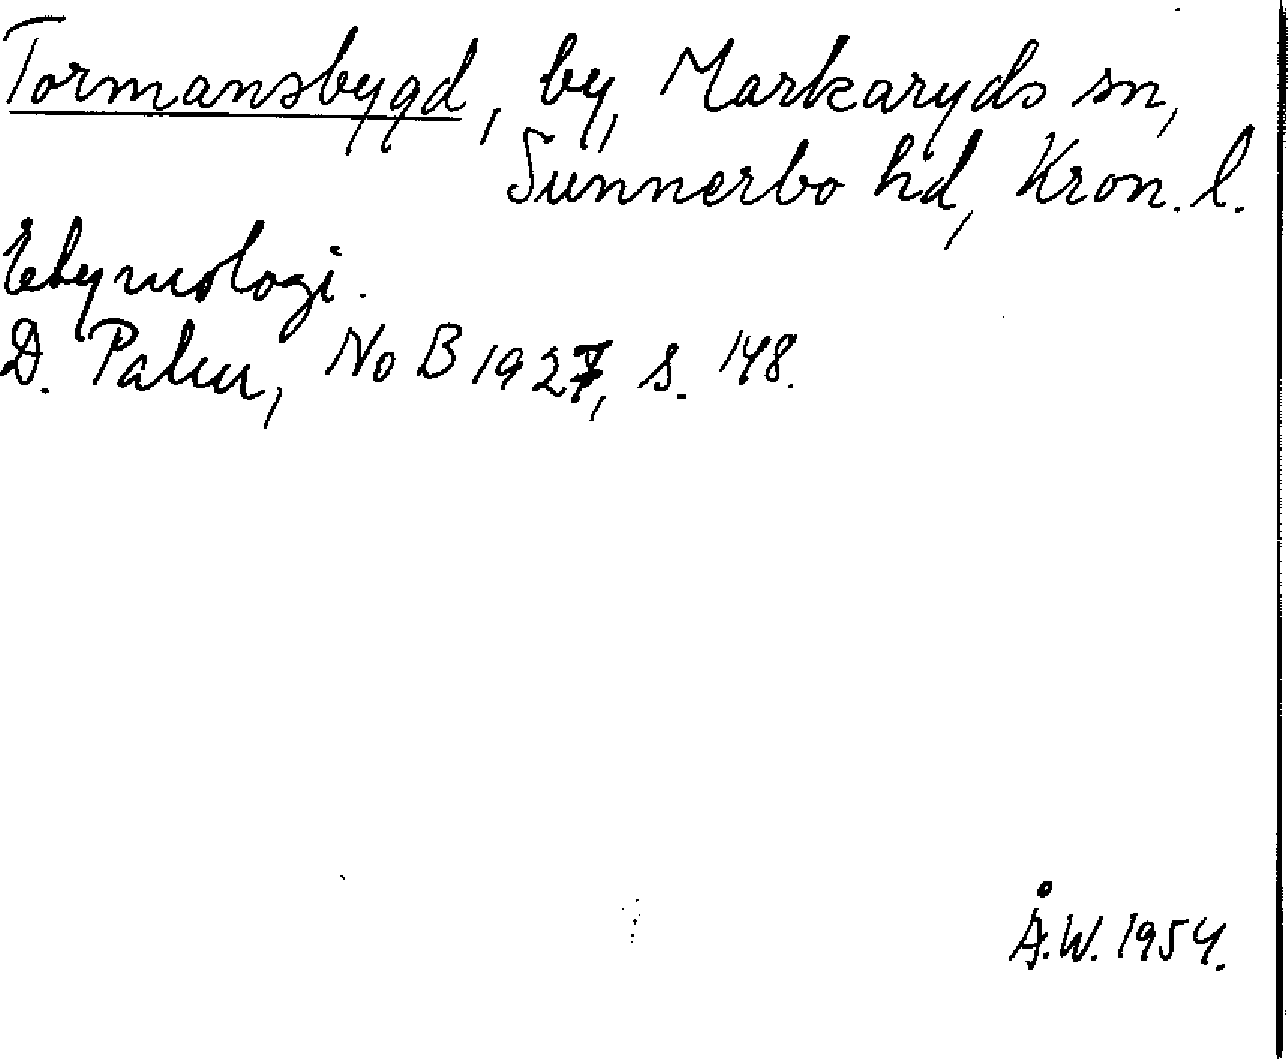 Tormansbygd, by, Markaryds sn,
Sunnerbo hd, Kron. l.
Etymologi.
D. Palm, NoB 1927, s. 148.
Å.W. 1954.